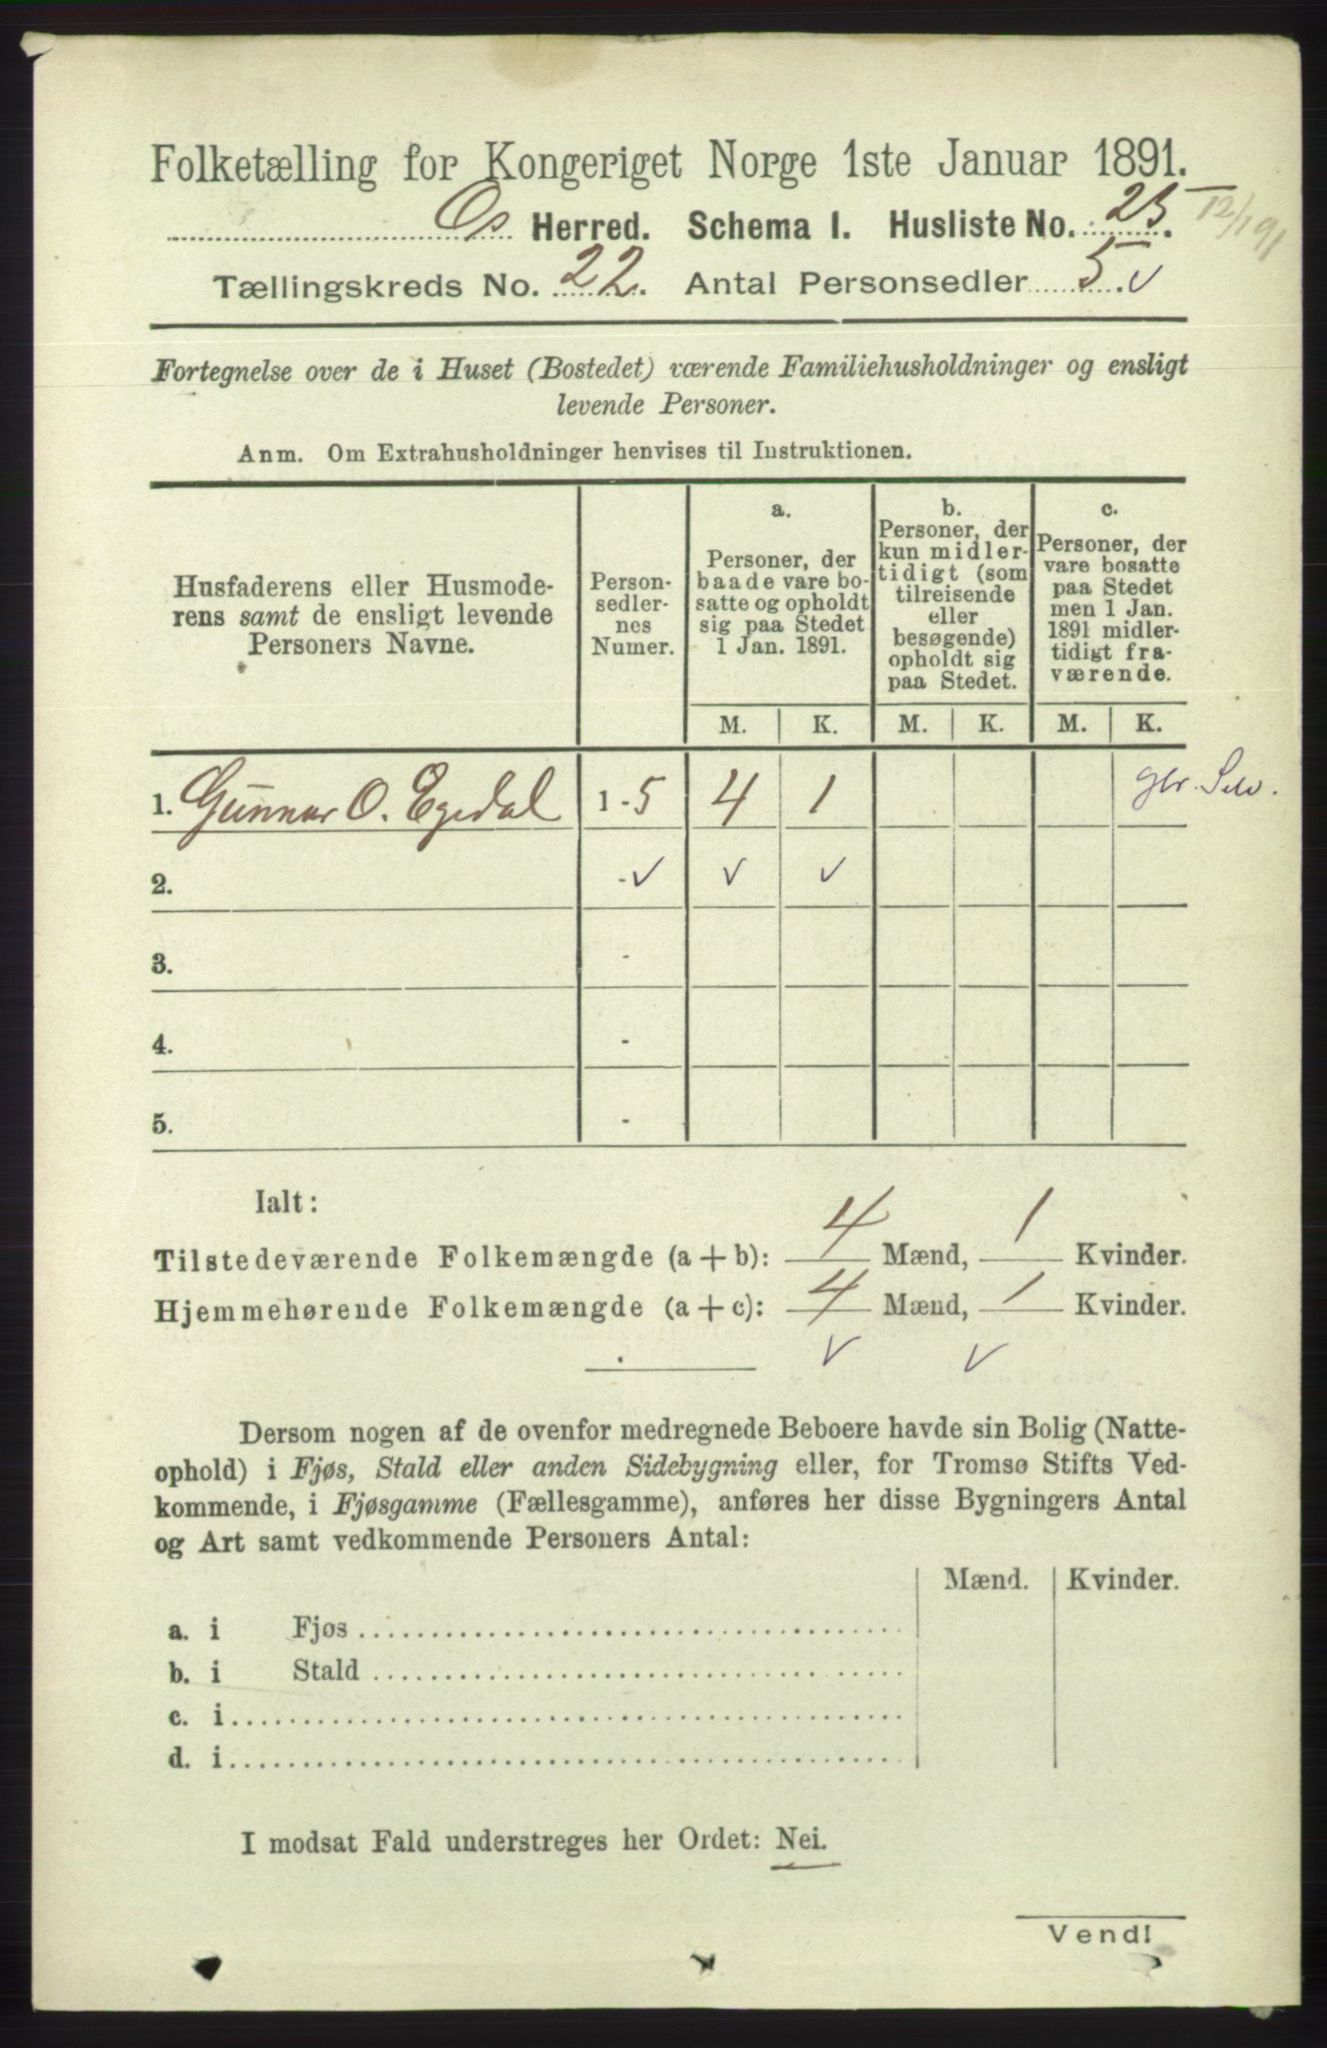 Folketælling for Kongeriget Norge 1ste Januar 1891.
Os Herred. Schema I. Husliste No. 25.
Tællingskreds No. 22. Antal Personsedler 5. v
Fortegnelse over de i Huset (Bostedet) værende Familiehusholdninger og ensligt
levende Personer.
Anm. Om Extrahusholdninger henvises til Instruktionen.
Husfaderens eller Husmode-
rens samt de ensligt levende
Personers Navne.
Person-
sedler-
nes
Numer.
a.
Personer, der
baade vare bo-
satte og opholdt
sig paa Stedet
1 Jan. 1891.
b.
Personer, der
kun midler-
tidigt (som
tilreisende
eller
besøgende)
opholdt sig
paa Stedet.
c.
Personer, der
vare bosatte
paa Stedet
men 1 Jan.
1891 midler-
tidigt fra-
værende.
M. K. M. K. M. K.
1. Gunnar O. Egedal 1 - 5 4 1
2. - v v v
3. -
4. -
5. -
Ialt:
Tilstedeværende Folkemængde (a + b): 4 Mænd, 1 Kvinder.
Hjemmehørende Folkemængde (a + c): 4 Mænd, 1 Kvinder.
v v
Dersom nogen af de ovenfor medregnede Beboere havde sin Bolig (Natte-
ophold) i Fjøs, Stald eller anden Sidebygning eller, for Tromsø Stifts Ved-
kommende, i Fjøsgamme (Fællesgamme), anføres her disse Bygningers Antal
og Art samt vedkommende Personers Antal:
Mænd. Kvinder.
a. i Fjøs
b. i Stald
c. i
d. i
I modsat Fald understreges her Ordet: Nei.
Vend!